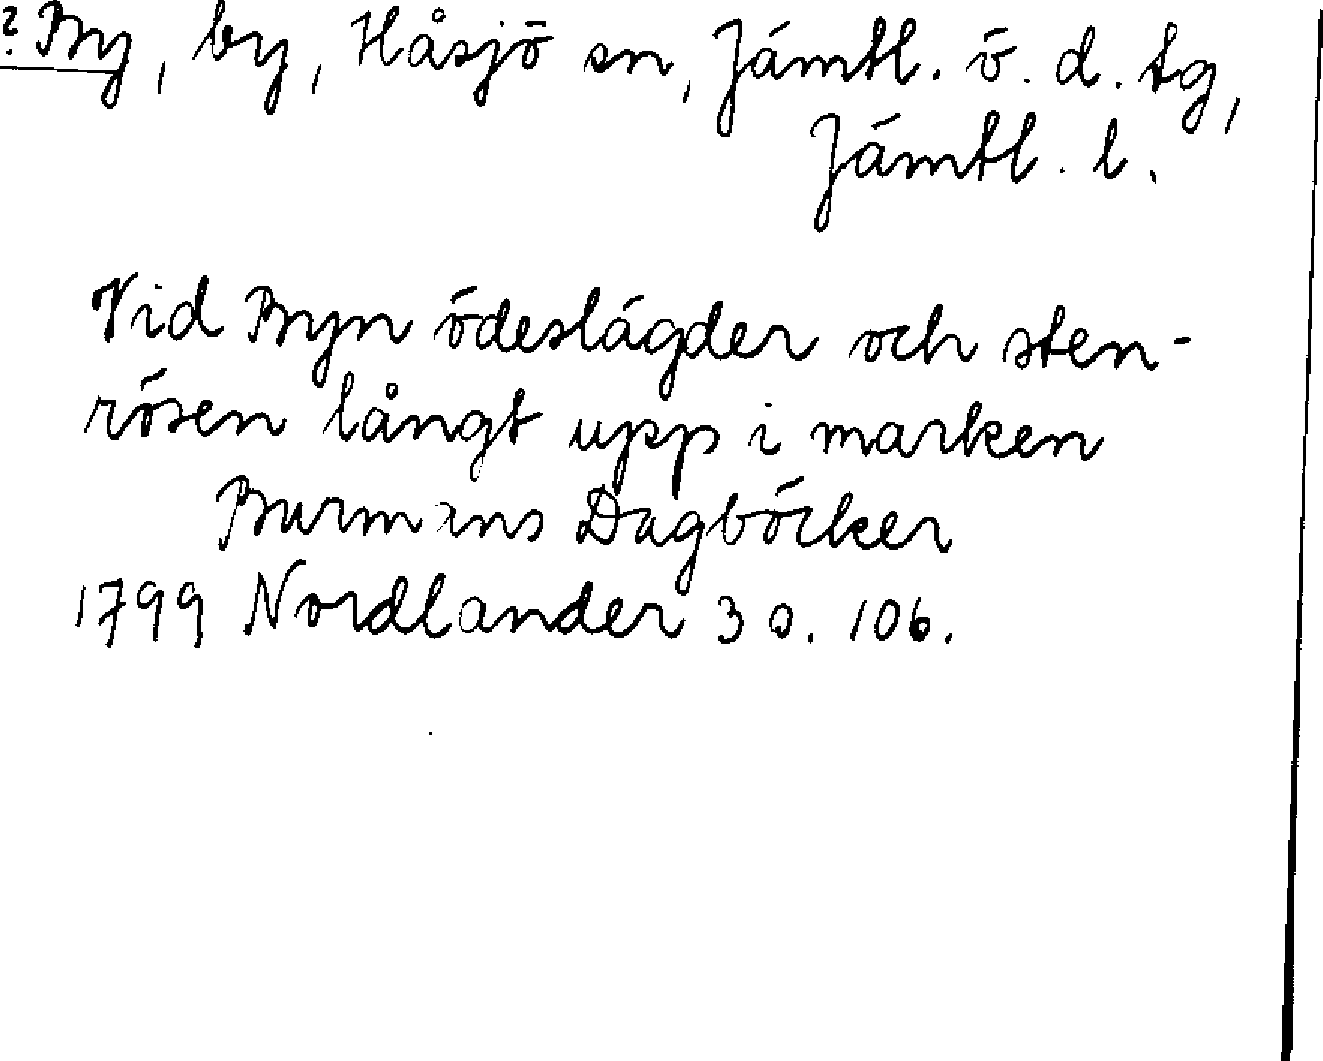 ? By, by, Håsjö sn, Jämtl. ö. d. tg,
Jämtl. l.
Vid Byn ödeslägder och sten-
rösen långt upp i marken
Burmans Dagböcker
1799 Nordlander 3 s. 106.